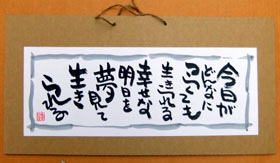 今日が
どんなに
つらくても
生きられる
幸せな
明日を
夢見て
生き
られる